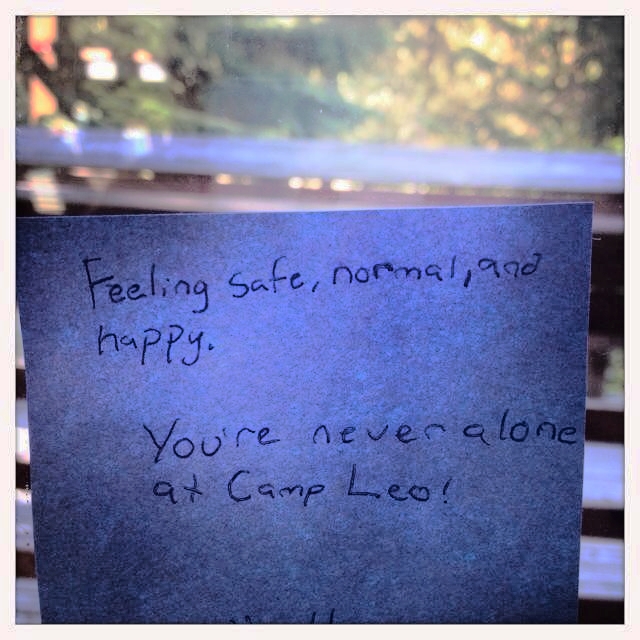 Feeling safe, normal, and
happy.
You're never alone
at Camp Leo!